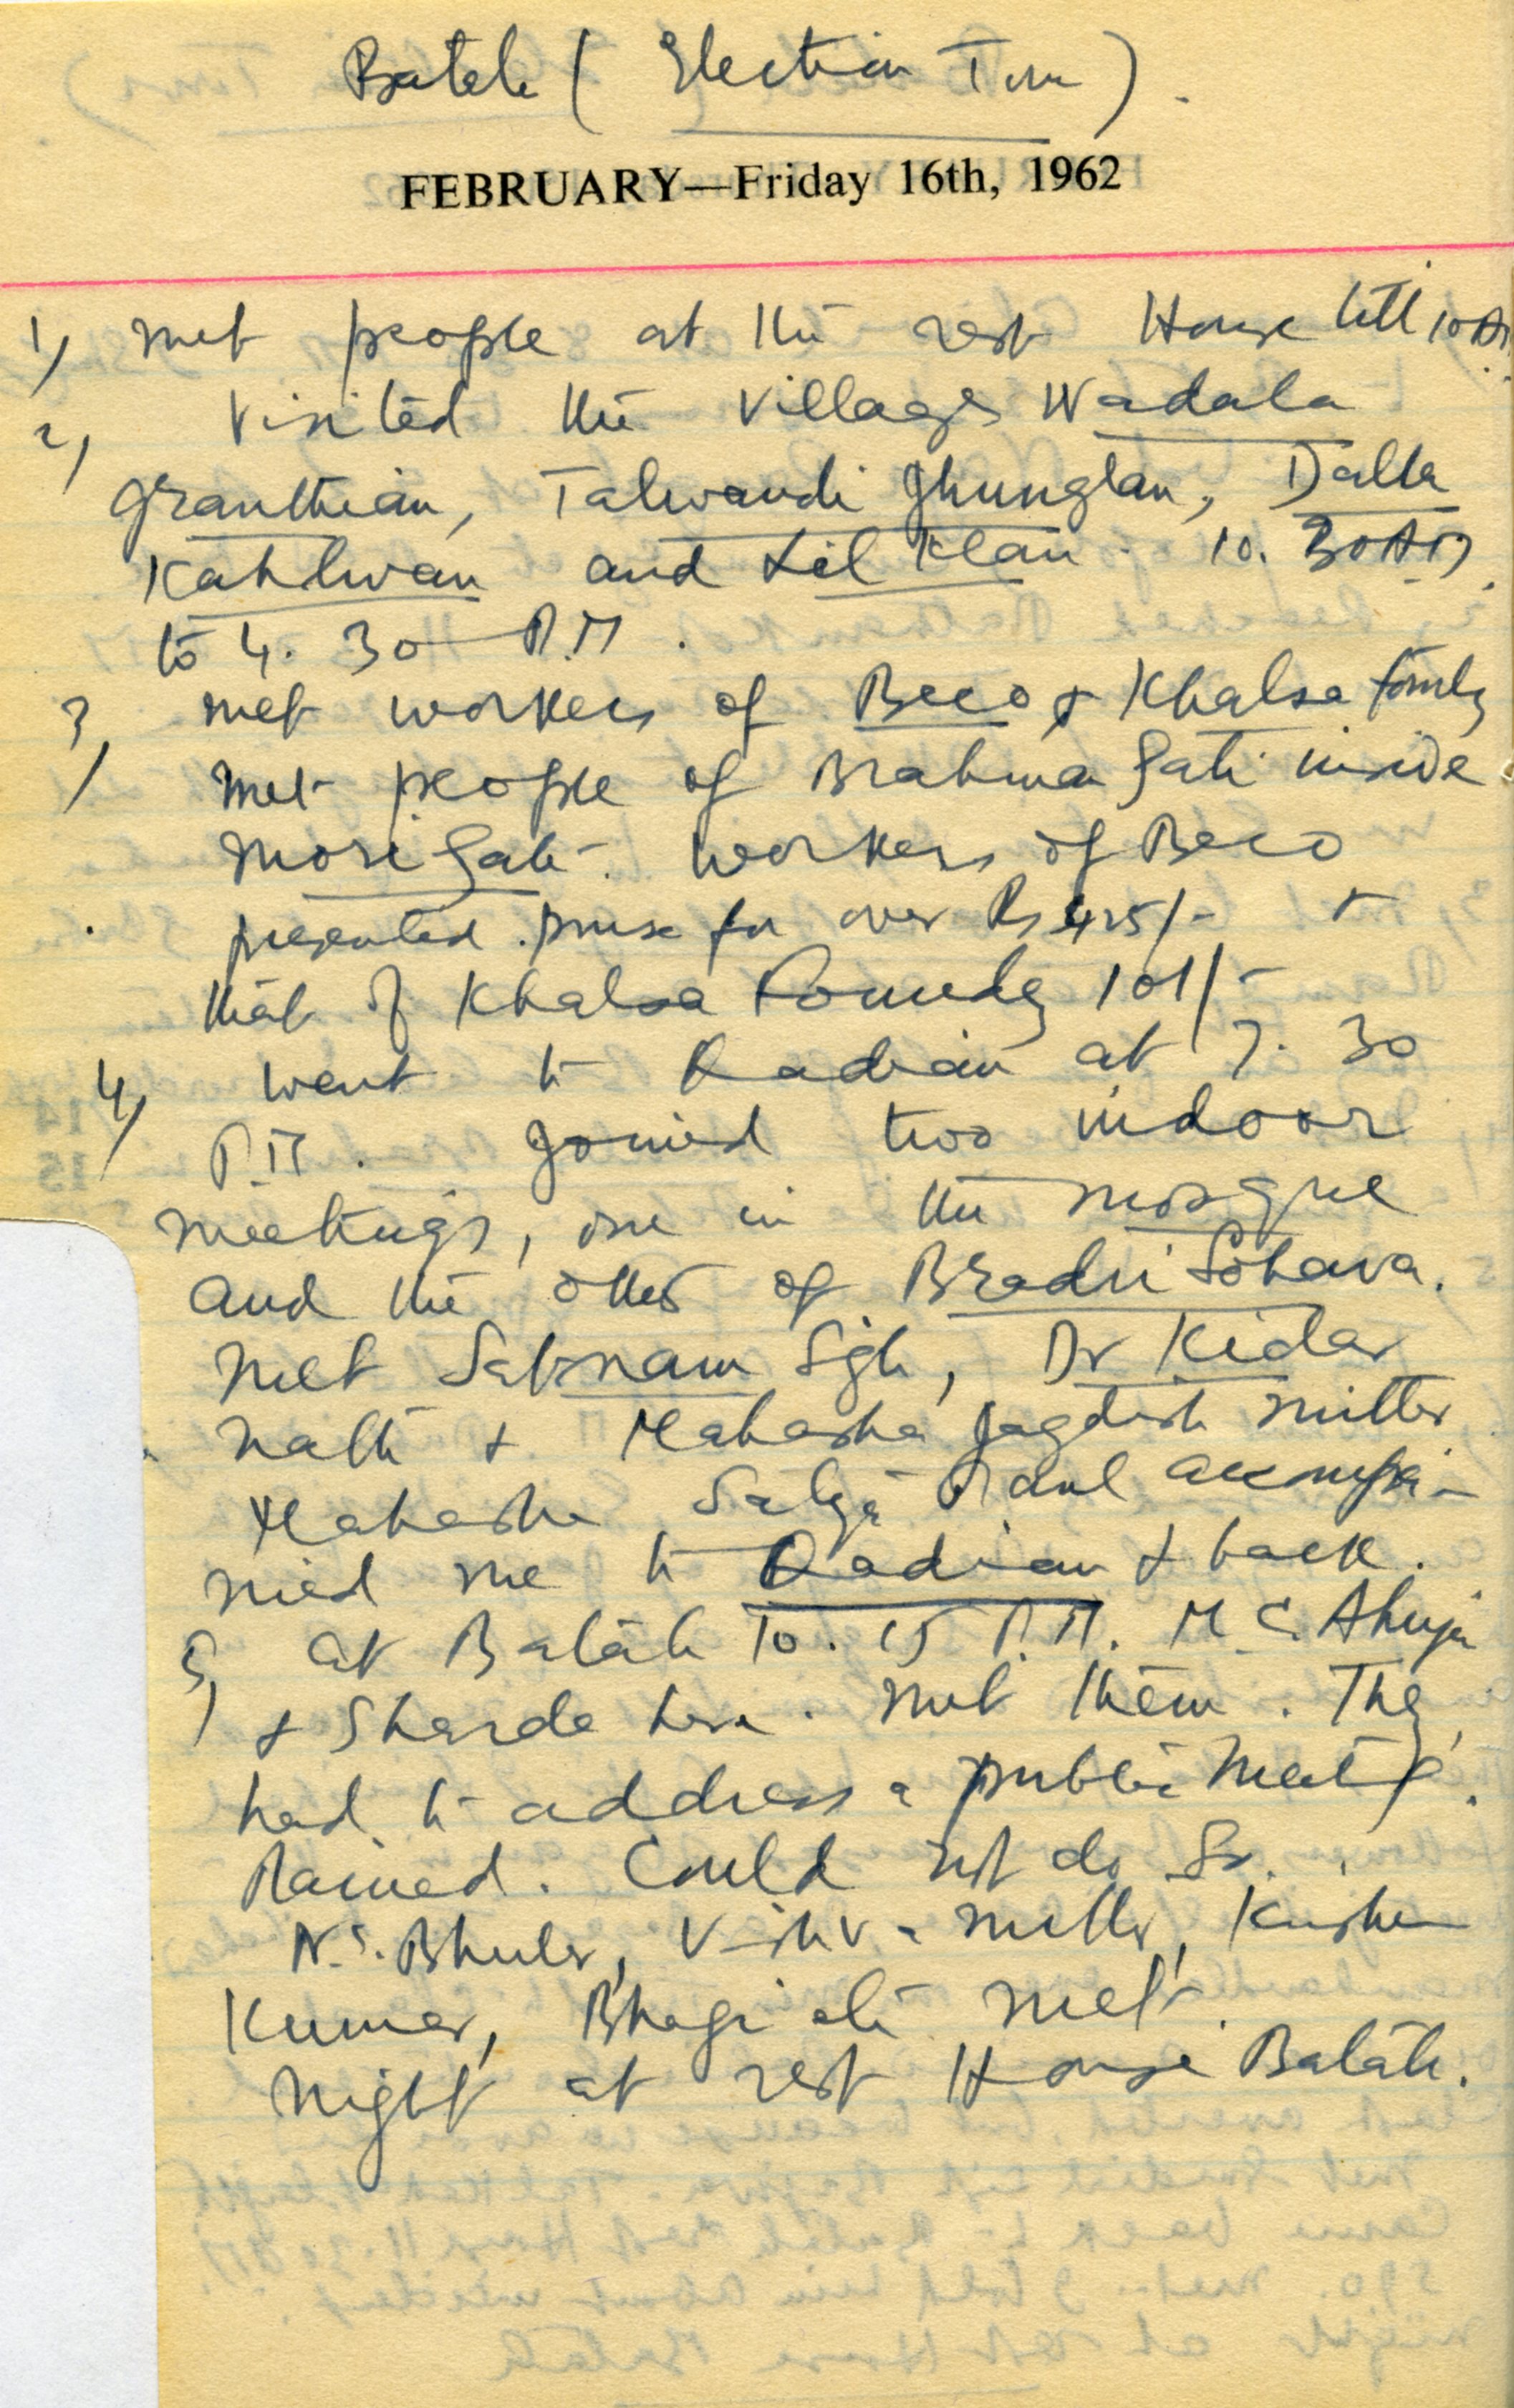 Batala (Election Tour).
FEBRUARY—Friday 16th, 1962
1) met people at the rest House till 10 AM.
2) Visited the villages Wadala
Granthian, Talwandi Jhunglan, Dalla
Kahlwan and Lil Klan. 10.30 AM.
to 4.30 P.M.
3) met workers of Beco & Khalsa
met people of Brahman Gate inside
Mori Gate. Workers of Beco
presented purse for over Rs 425/- &
that of Khalsa 101/-
4) went to Qadian at 7.30
P.M. Joined two indoor
meetings, one in the mosque
and the other of Bradri Sobawa.
Met Satnam Sgh, Dr Kidar
Nath & Mahasha Jagdish Mitter
Mahasha Satya Paul accompa-
nied me to Qadian & back.
5) at Batala 10.15 P.M. M C. Ahuja
& Sharda here. Met them. They
had to address a public meeting.
Rained. Could not do so.
N.S. Bhuler, Vishva Mitter, Krishen
Kumar, met.
Night at rest House Batala.